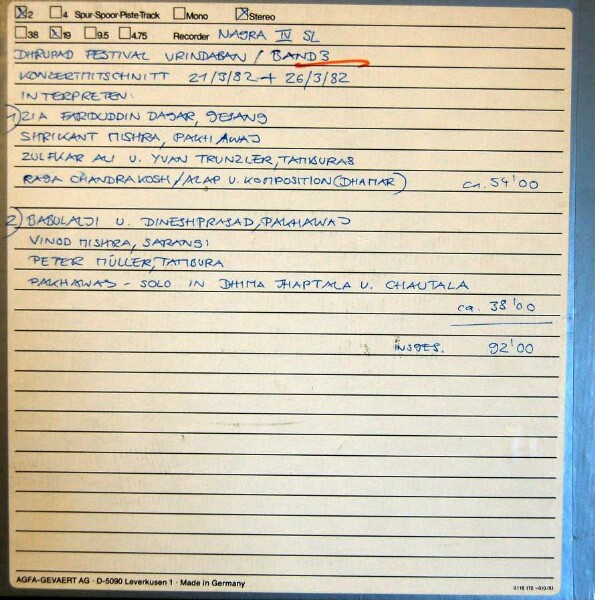 ☒2 ☐4 Spur-Spoor-Piste-Track ☐Mono ☒Stereo
☐38 ☒19 ☐9.5 ☐4.75 Recorder NAGRA IV SL
DHRUPAD FESTIVAL VRINDABAN / BAND 3
KONZERTMITSCHNITT 21/3/82 + 26/3/82
INTERPRETEN:
1) ZIA FARIDUDDIN DAGAR, GESANG
SHRIKANT MISHRA, PAKHAWAJ
ZULFIKAR ALI U. YVAN TRUNZLER, TAMBURAS
RAGA CHANDRAKOSH / ALAP U. KOMPOSITION (DHAMAR) ca. 54'00
2) BABULALJI U. DINESHPRASAD, PAKHAWAJ
VINOD MISHRA, SARANGI
PETER MÜLLER, TAMBURA
PAKHAWAJ - SOLO IN DHIMA JHAPTALA U. CHAUTALA
ca. 38'00
INSGES. 92'00
AGFA-GEVAERT AG · D-5090 Leverkusen 1 · Made in Germany